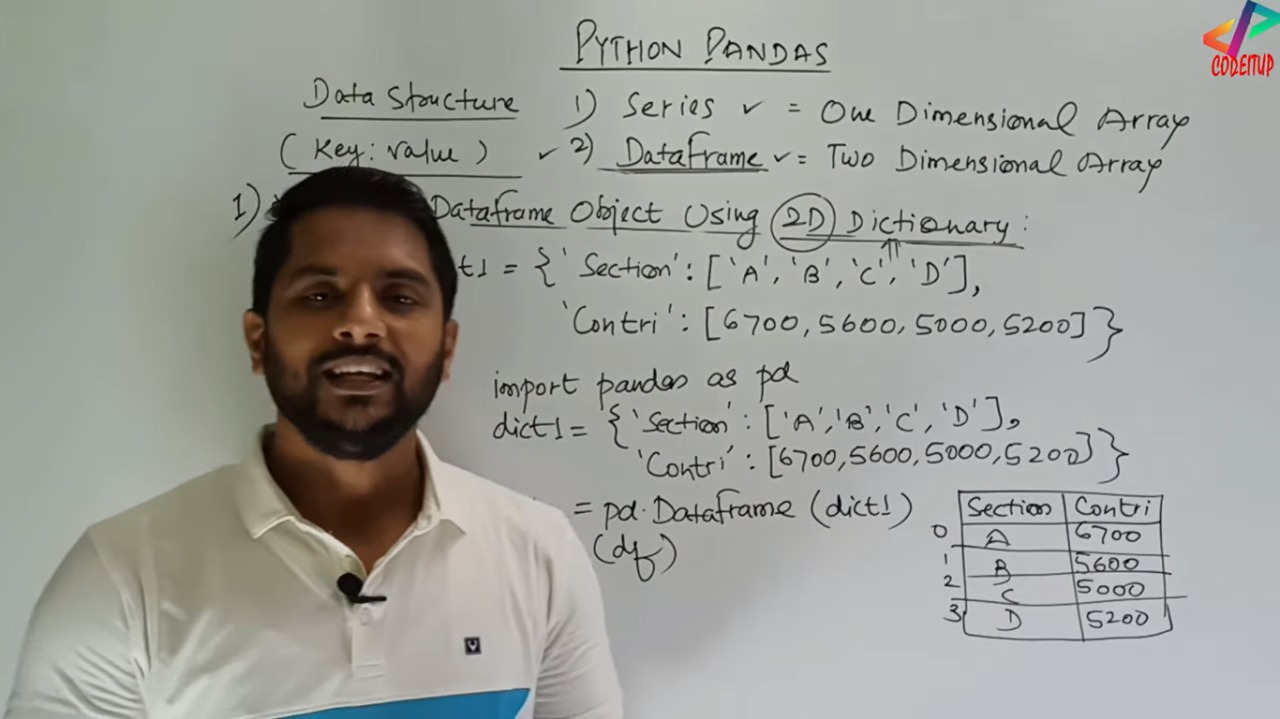 PYTHON PANDAS
CODEITUP
Data Structure
(Key: value)
1) Series ✓ = One Dimensional Array
✓ 2) DataFrame ✓ = Two Dimensional Array
1) Dataframe Object Using 2D Dictionary:
t1 = {'Section': ['A', 'B', 'C', 'D'],
'Contri': [6700, 5600, 5000, 5200]}
import pandas as pd
dict1 = {'Section': ['A', 'B', 'C', 'D'],
'Contri': [6700, 5600, 5000, 5200]}
= pd.Dataframe (dict1)
(df)
Section Contri
0 A 6700
1 B 5600
2 C 5000
3 D 5200